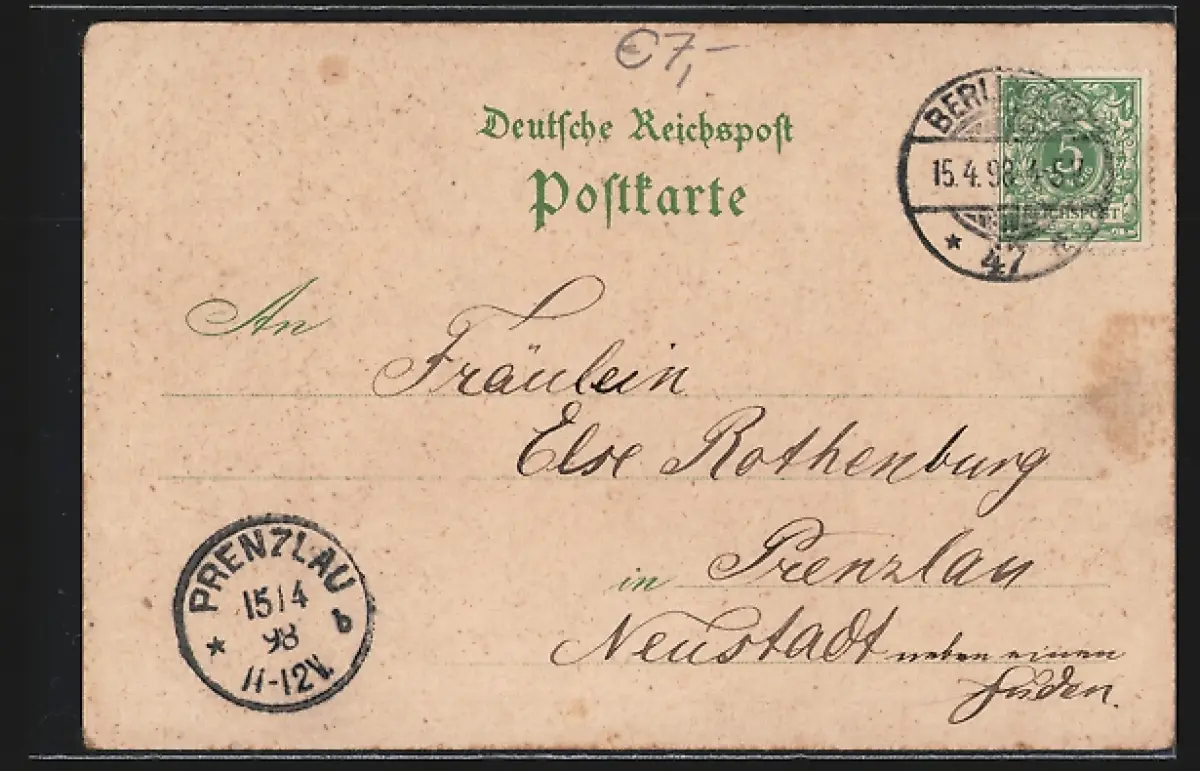 €7,-
Deutsche Reichspost
Postkarte
BERLIN
15.4.98. 4-5V.
* 47 *
5
REICHSPOST
An
Fräulein
Else Rothenburg
in Prenzlau
Neustadt neben einem
Juden.
PRENZLAU
15/4
98
* b
11-12V.